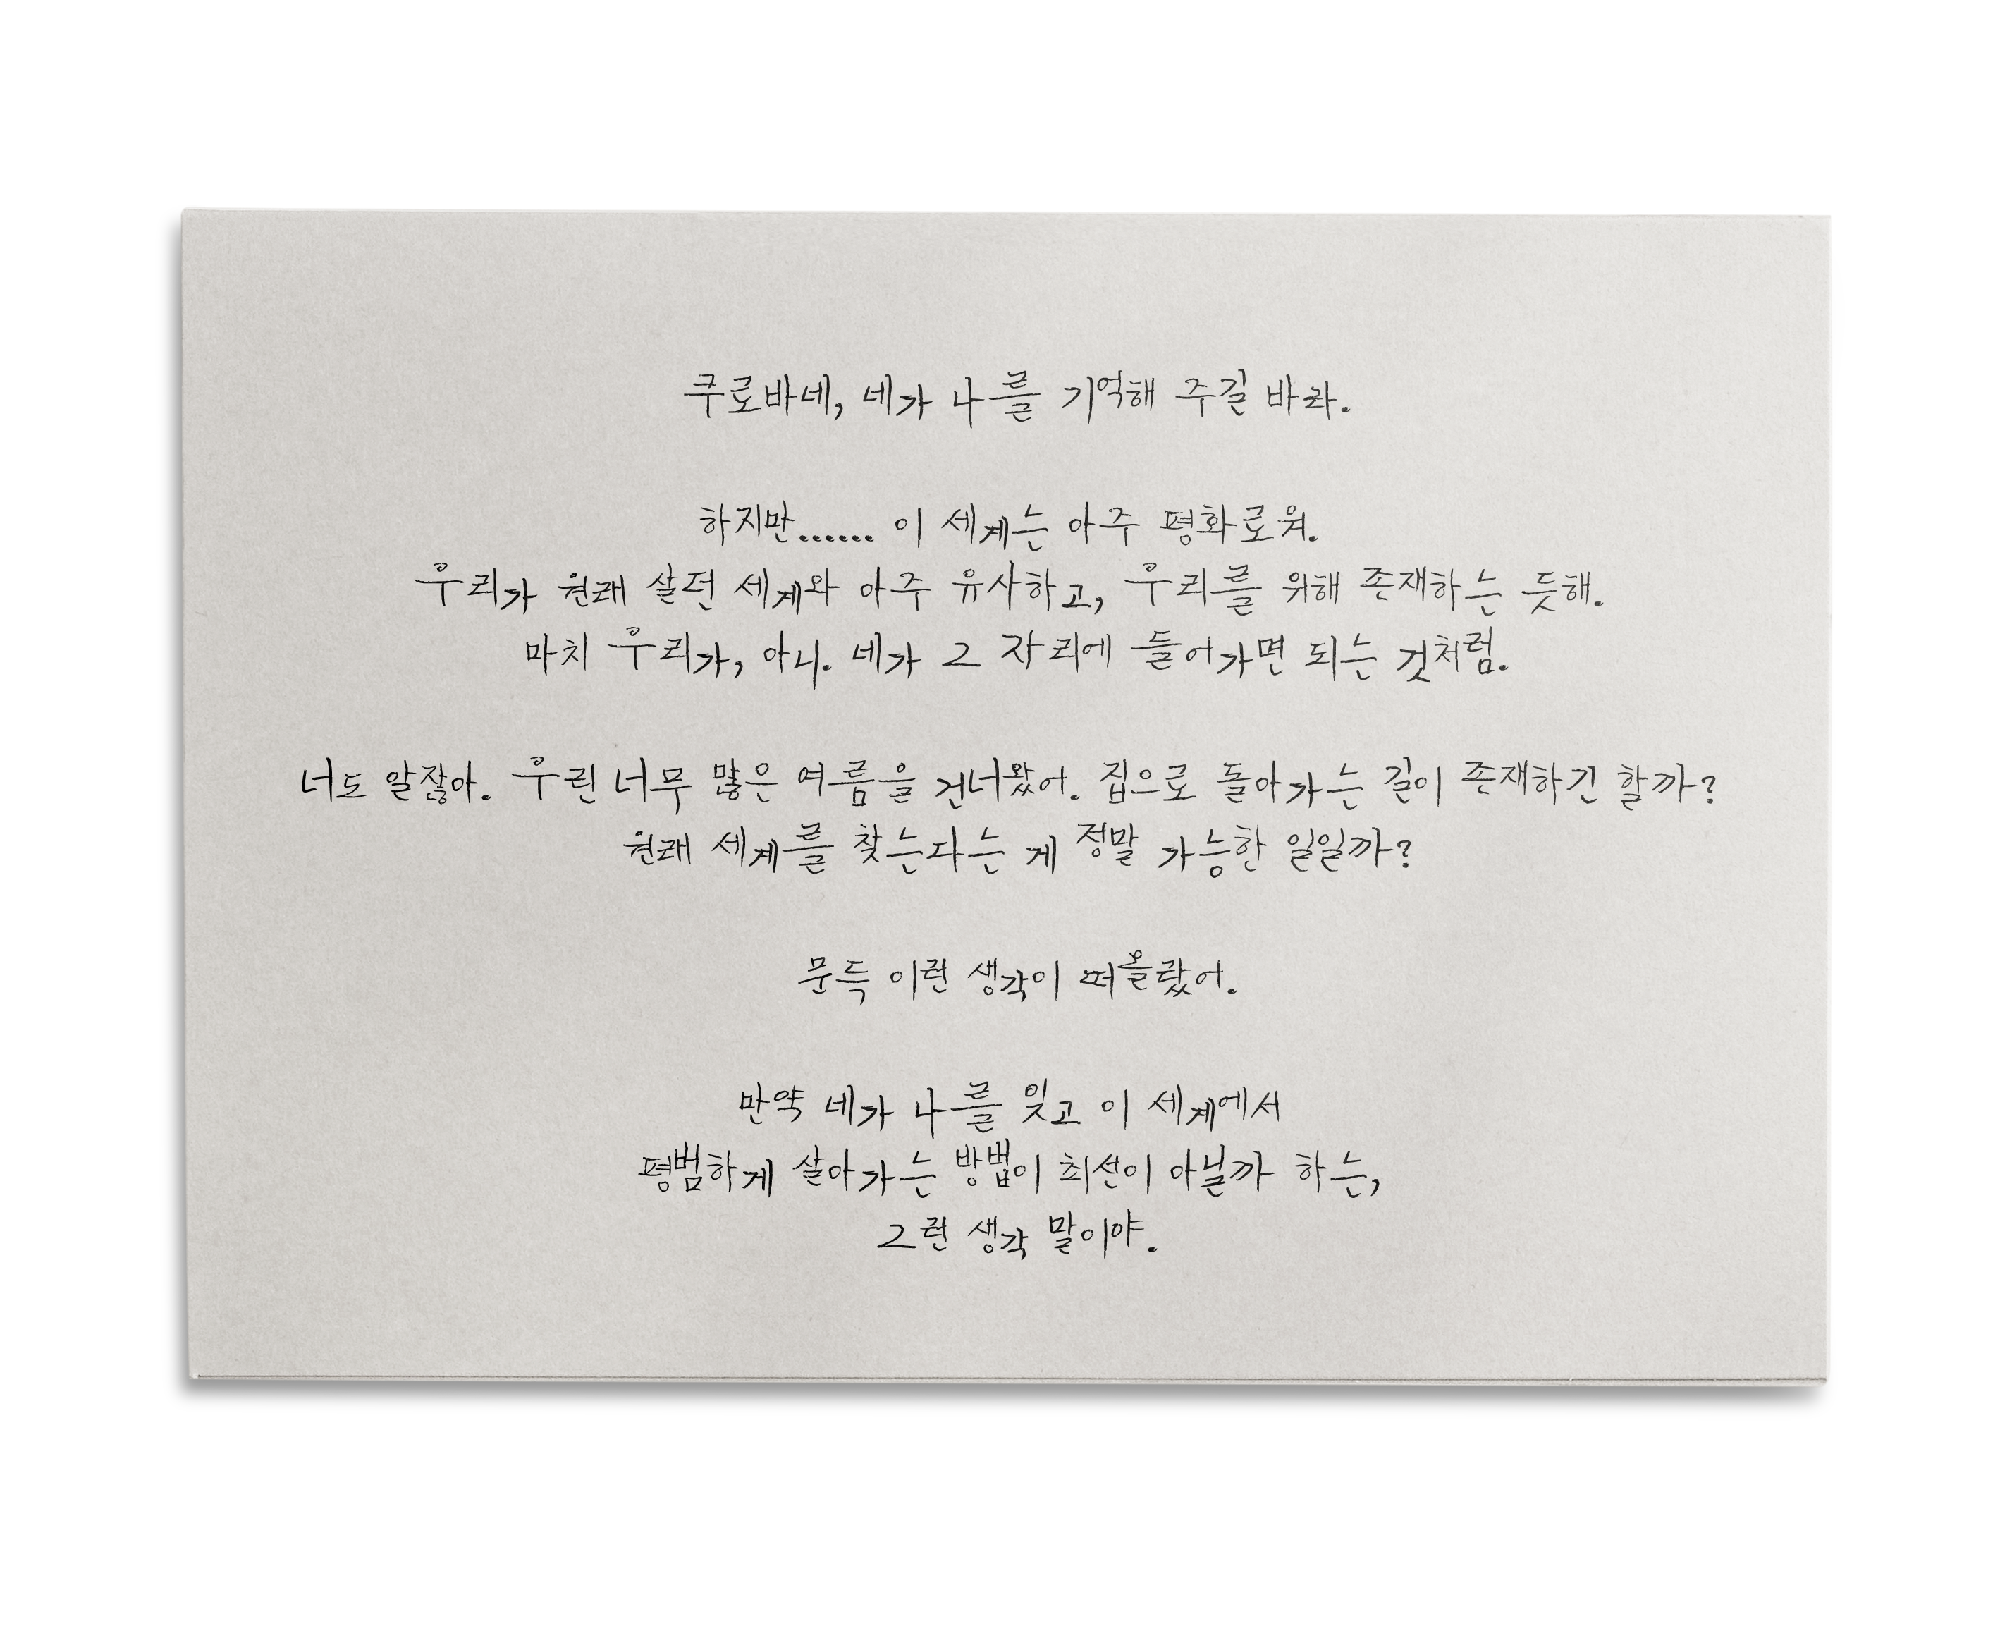 쿠로바네, 네가 나를 기억해 주길 바라.
하지만...... 이 세계는 아주 평화로워.
우리가 원래 살던 세계와 아주 유사하고, 우리를 위해 존재하는 듯해.
마치 우리가, 아니. 네가 그 자리에 들어가면 되는 것처럼.
너도 알잖아. 우린 너무 많은 여름을 건너왔어. 집으로 돌아가는 길이 존재하긴 할까?
원래 세계를 찾는다는 게 정말 가능한 일일까?
문득 이런 생각이 떠올랐어.
만약 네가 나를 잊고 이 세계에서
평범하게 살아가는 방법이 최선이 아닐까 하는,
그런 생각 말이야.